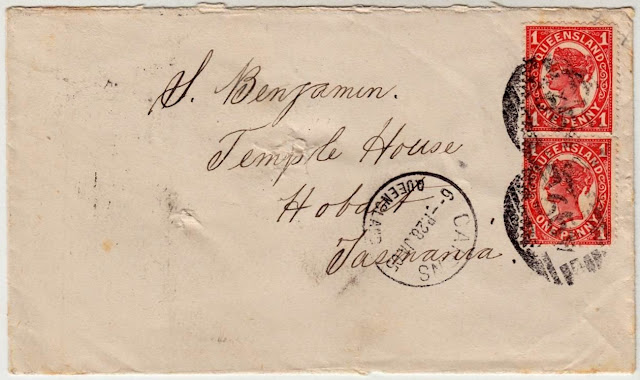 1 1
QUEENSLAND
ONE PENNY
1 1
1 1
QUEENSLAND
ONE PENNY
1 1
S. Benjamin.
Temple House
Hobart
Tasmania.
QUEENSLAND